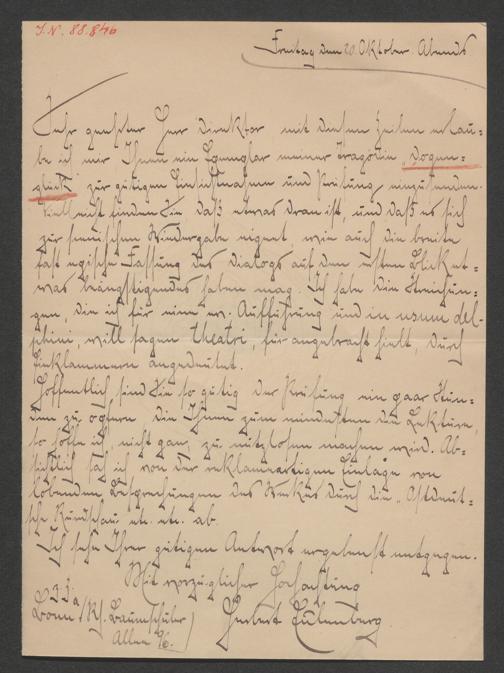 J.N. 88.846
Freitag den 20. Oktober. Abends
Sehr geehrter Herr Direktor mit diesen Zeilen erlau=
be ich mir Ihnen ein Exemplar meiner Tragödie "Dogen=
glück" zur gütigen Einsichtnahme und Prüfung einzusenden.
nicht finden Sie daß etwas dran ist, und daß es sich
zur szenischen Wiedergabe eignet, wie auch die breite
fast epische Fassung des Dialogs auf den ersten Blick et=
was beängstigendes haben mag. Ich habe die Streichun=
gen, die ich für eine ev. Aufführung und in usum del=
phini, will sagen theatri, für angebracht hielt, durch
Einklammern angedeutet.
Hoffentlich sind Sie so gütig der Prüfung ein paar Stun=
den zu opfern die Ihnen zum mindesten die Lektüre,
so hoffe ich, nicht ganz zu nutzlosen machen wird. Ab=
sichtlich sah ich von der reklameartigen Einlage von
lobenden Besprechungen des Werkes durch die "Ostdeut=
sche Rundschau" etc. etc. ab.
Ich sehe Ihrer gütigen Antwort ergebenst entgegen.
Mit vorzüglicher Hochachtung
Herbert Eulenburg
z.Z.
Bonn a/Rh. Baumschuler
Allee 96.